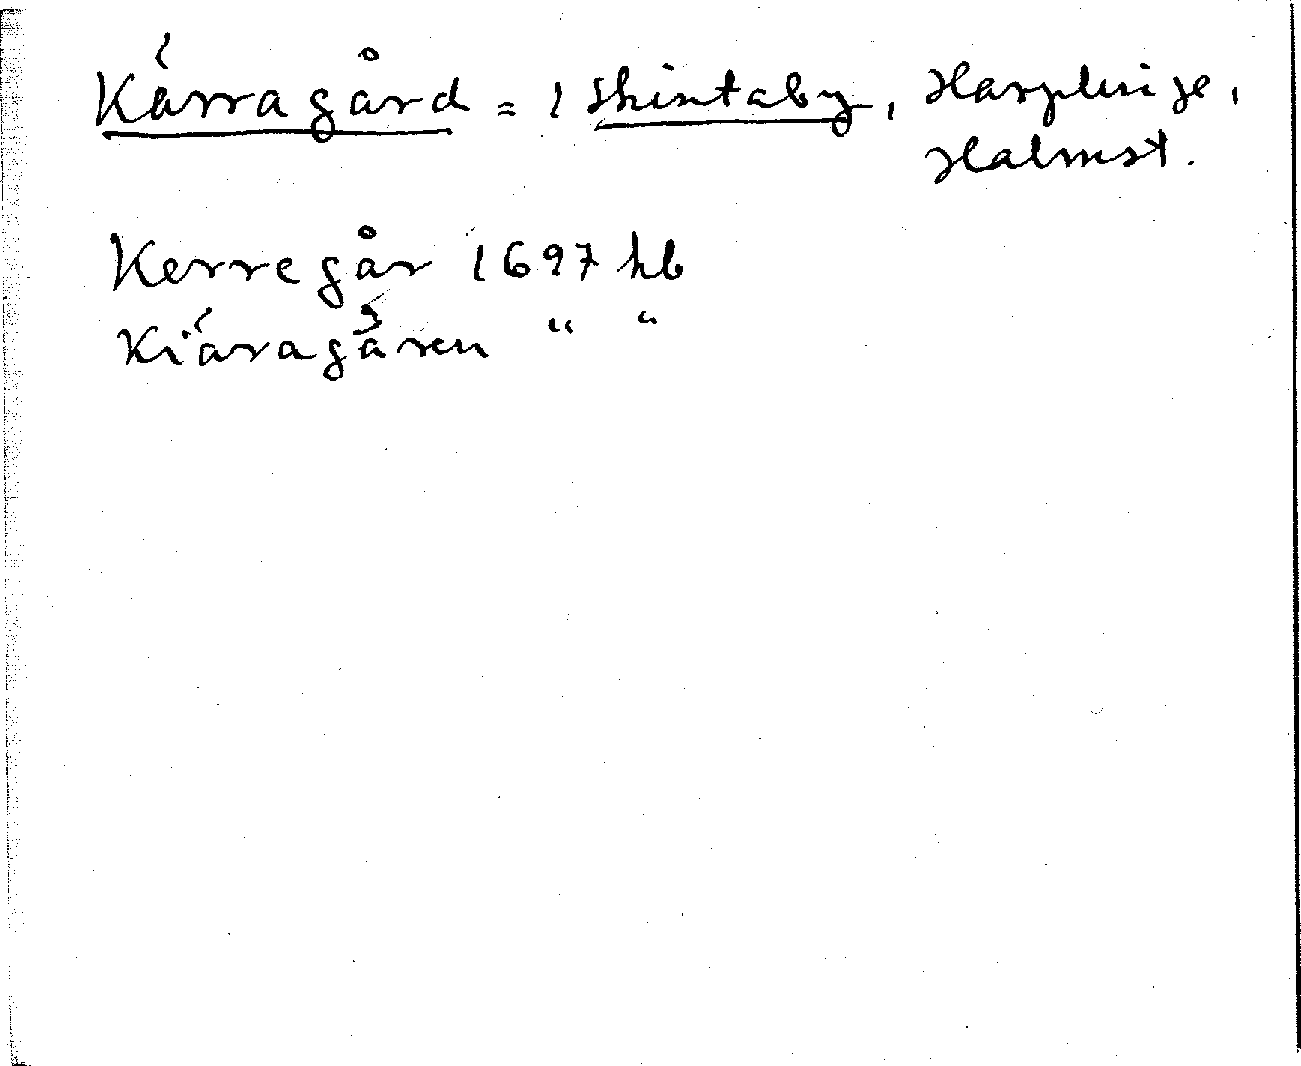 Kärragård = 1 Skintaby, Harplinge,
Halmst.
Kerregår 1697 hb
Kiäragåren " "